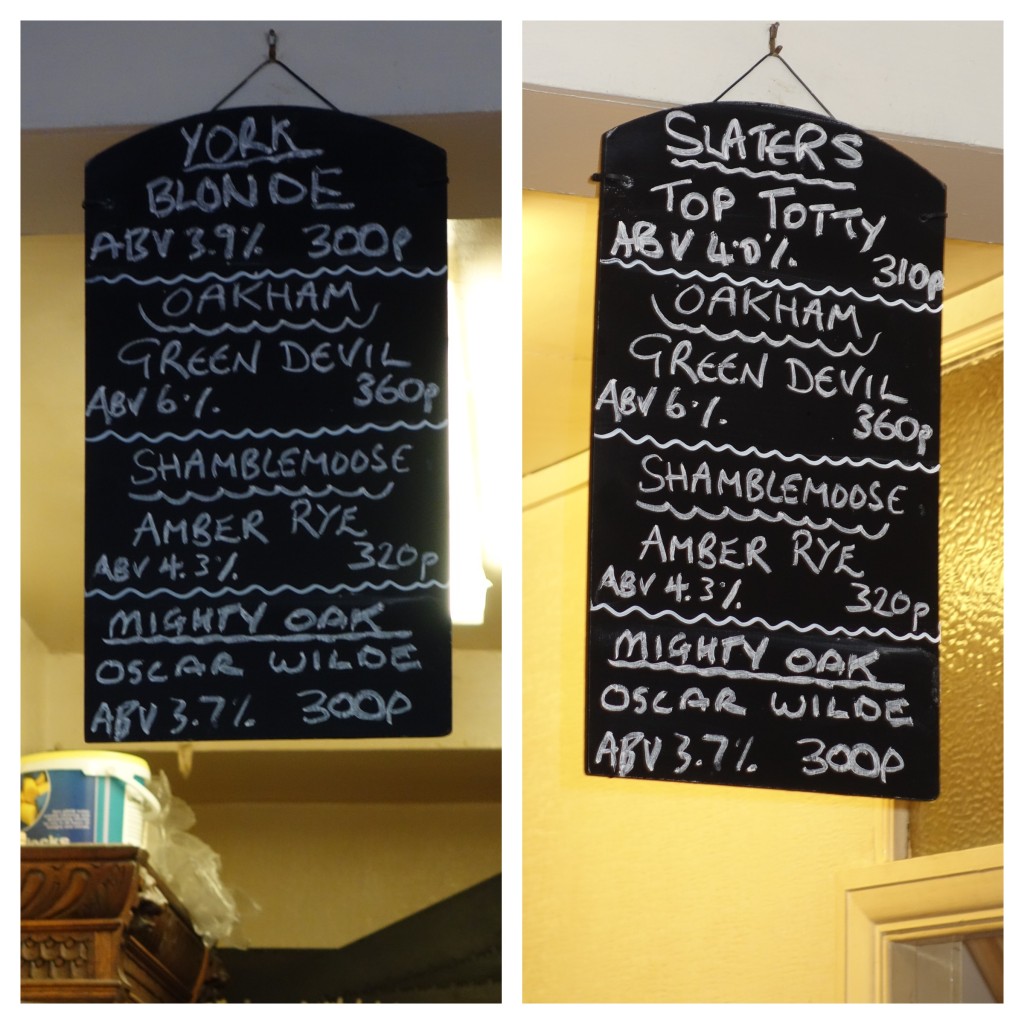 YORK
BLONDE
ABV 3.9% 300p
OAKHAM
GREEN DEVIL
ABV 6% 360p
SHAMBLEMOOSE
AMBER RYE
ABV 4.3% 320p
MIGHTY OAK
OSCAR WILDE
ABV 3.7% 300p
SLATERS
TOP TOTTY
ABV 4.0% 310p
OAKHAM
GREEN DEVIL
ABV 6% 360p
SHAMBLEMOOSE
AMBER RYE
ABV 4.3% 320p
MIGHTY OAK
OSCAR WILDE
ABV 3.7% 300p